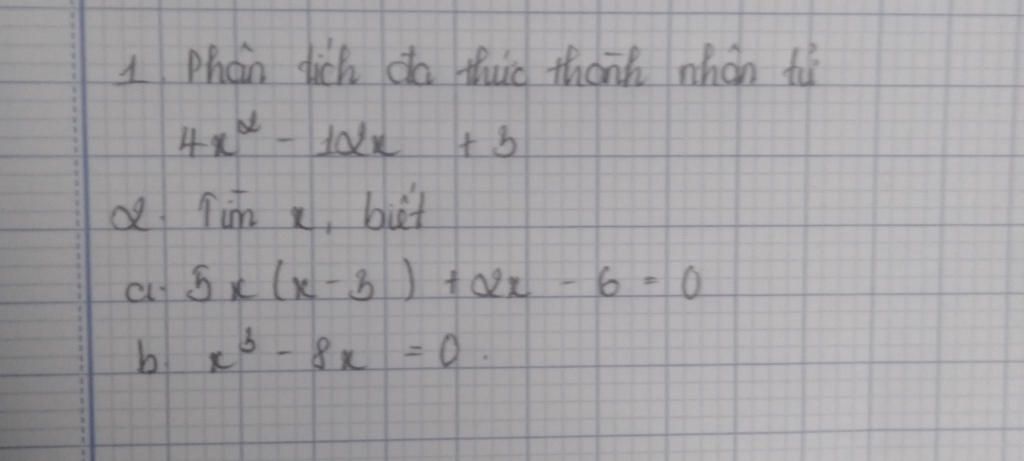 1. Phân tích đa thức thành nhân tử
4x² - 12x + 3
2. Tìm x, biết
a. 5x(x-3) + 2x - 6 = 0
b. x³ - 8x = 0.